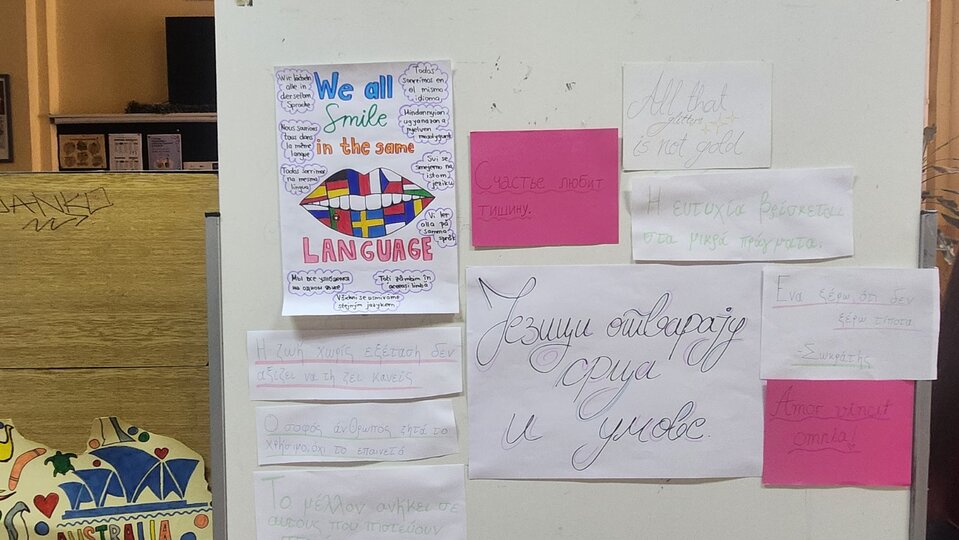 We all
Smile
in the same
LANGUAGE
Wir lächeln
alle in
derselben
Sprache
Nous sourions
tous dans
la même
langue
Todos sorrimos
na mesma
língua
Todos
sonreímos en
el mismo
idioma
Mindannyian
ugyanazon a
nyelven
mosolygunk
Svi se
smejemo na
istom
jeziku
Vi ler
alla på
samma
språk
Мы все
на одном языке
Toți zâmbim în
aceeași limbă
Všichni se usmíváme
stejným jazykem
Счастье любит
тишину.
All that
glitters
is not gold
Η ευτυχία βρίσκεται
στα μικρά πράγματα.
Η ζωή χωρίς εξέταση δεν
αξίζει να τη ζει κανείς
Ο σοφός άνθρωπος ζητά το
χρήσιμο, όχι το επαινετό
Το μέλλον ανήκει σε
αυτούς που πιστεύουν
Језици отварају
срца
и умове.
Ένα ξέρω, ότι δεν
ξέρω τίποτα
-Σωκράτης
Amor vincit
omnia!
JANKO
AUSTRALIA